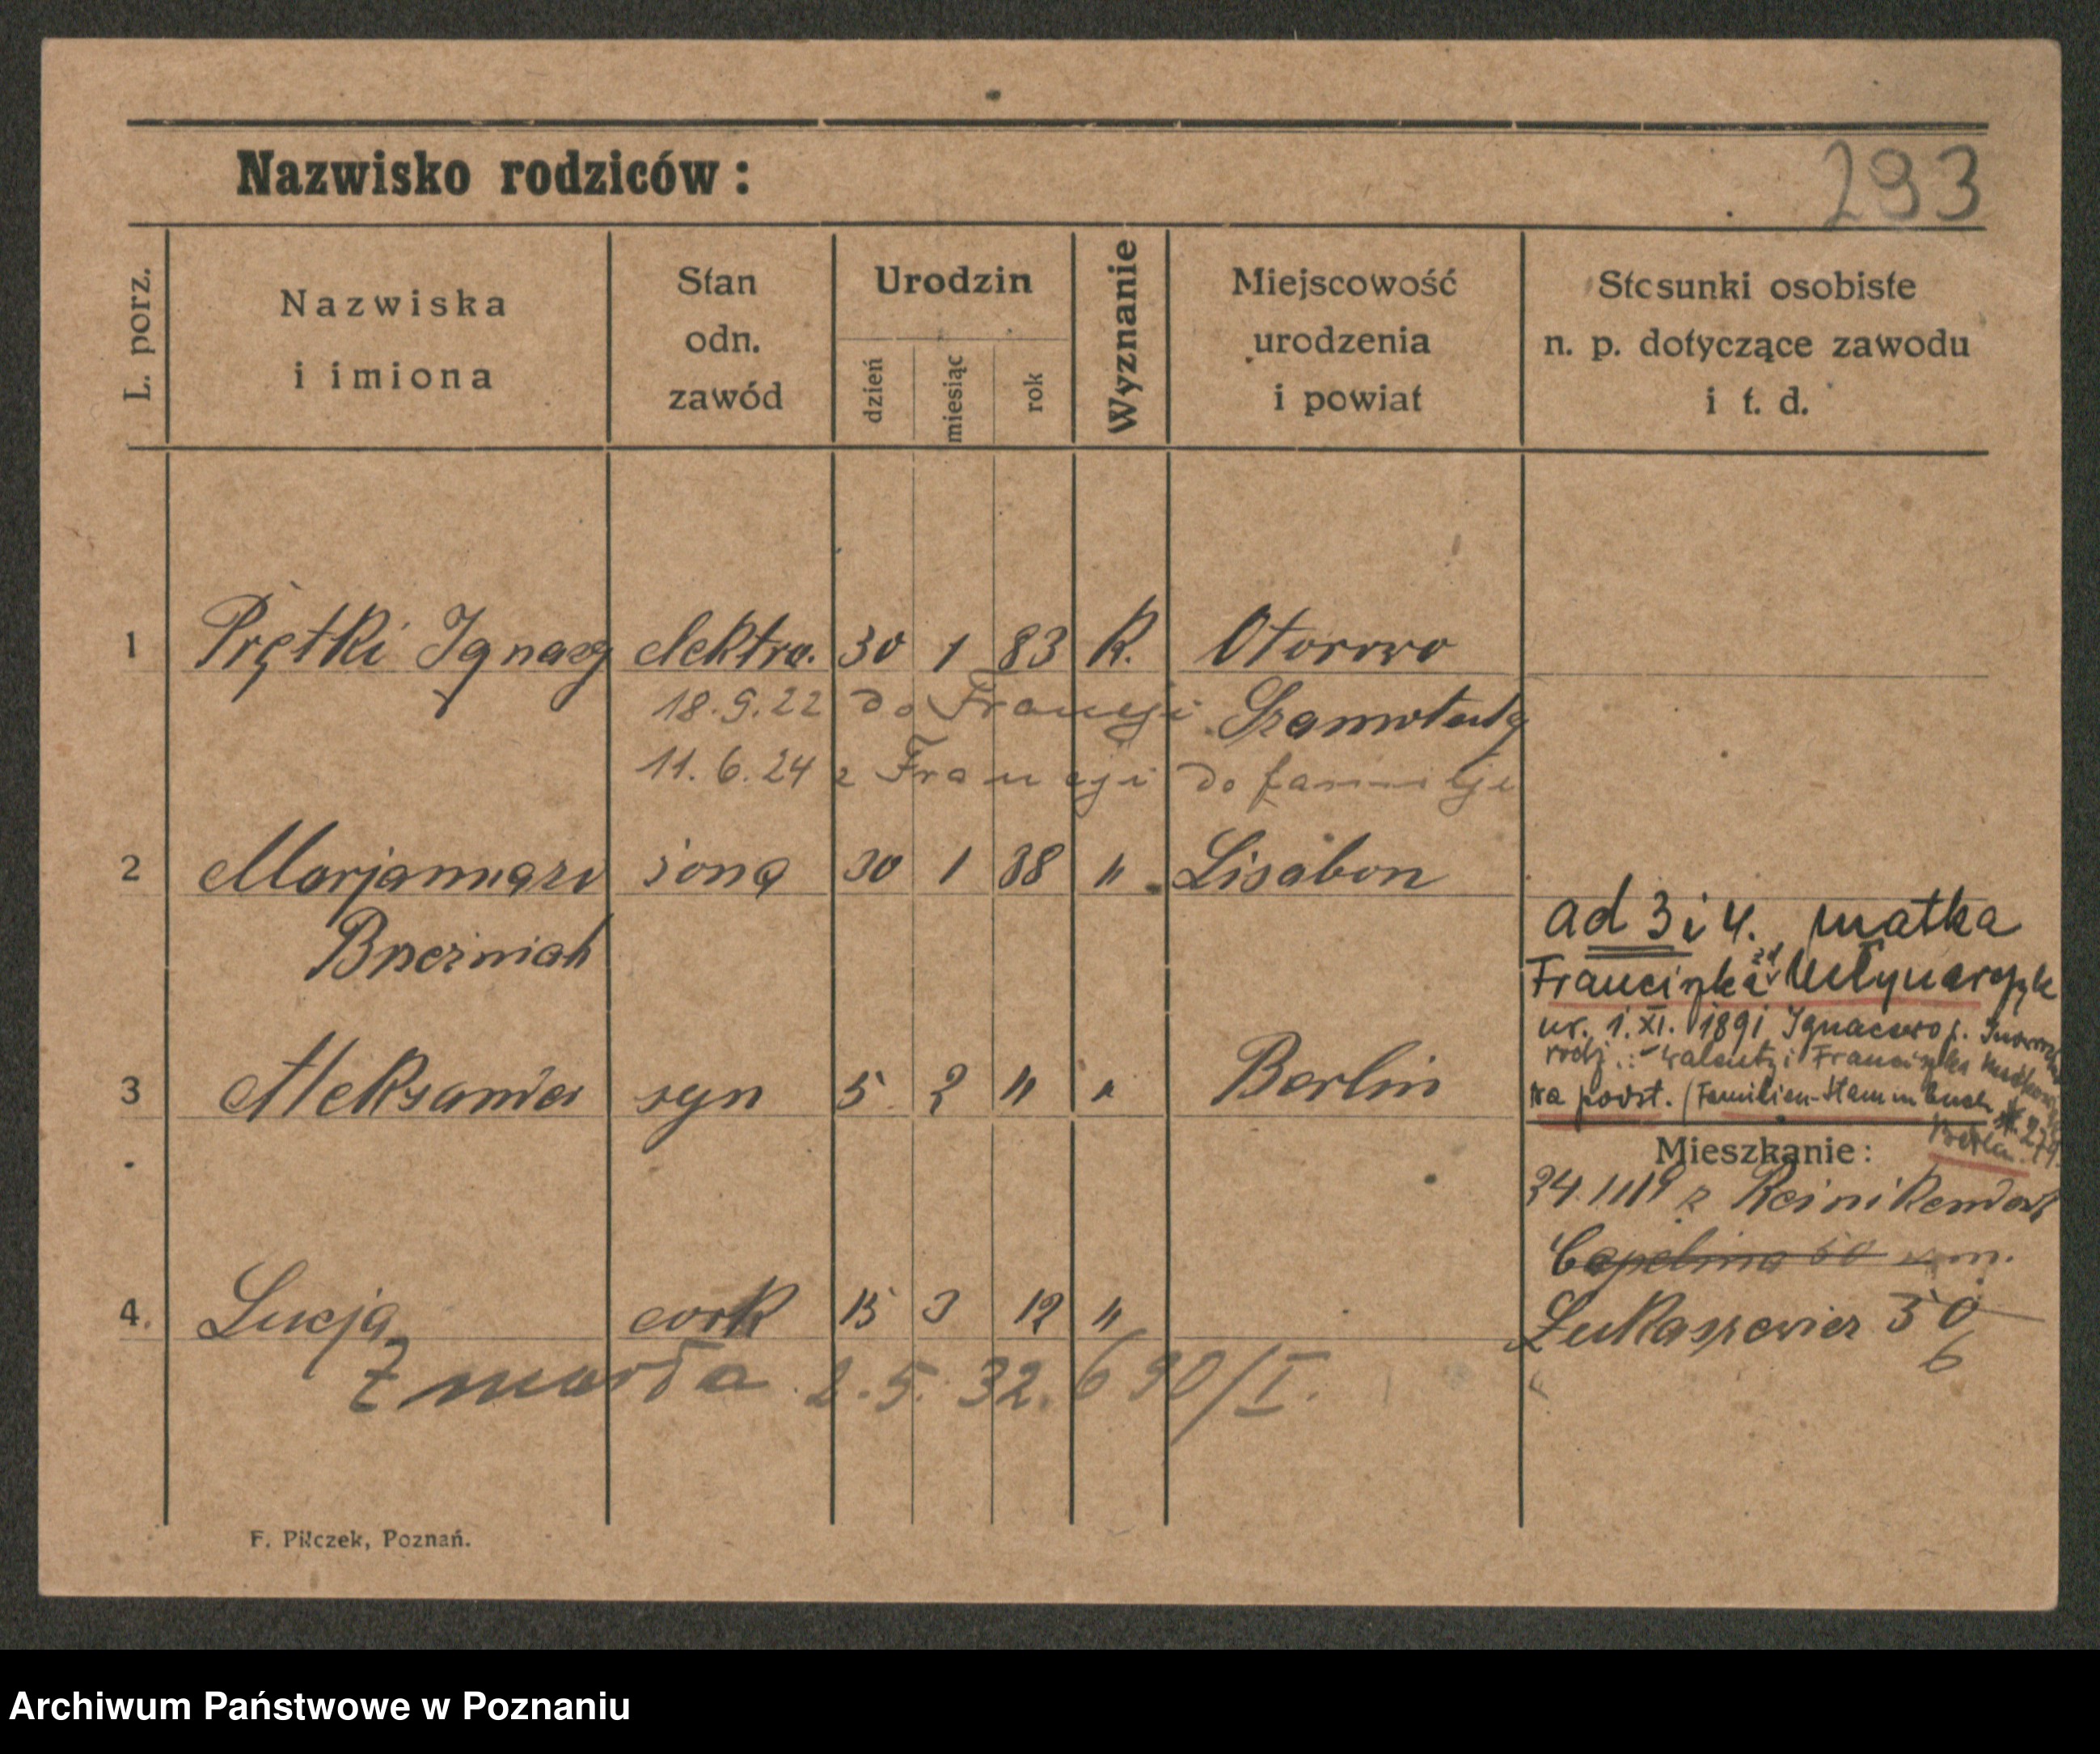 Nazwisko rodziców:
293
L. porz.
Nazwiska
i imiona
Stan
odn.
zawód
Urodzin
dzień
miesiąc
rok
Wyznanie
Miejscowość
urodzenia
i powiat
Stosunki osobiste
n. p. dotyczące zawodu
i t. d.
1 Prętki Ignacy elektro. 30 1 83 K. Otorowo
18.9.22 do Francji Szamotuły
11.6.24 z Francji do familji
2 Marjanna żona 30 1 88 " Lisabon
ad 3 i 4. matka
Franciszka Młynarczyk
ur. 1.XI.1891 Ignacewo
rodz.: Walenty i Franciszka
na podst. (Familien-Stammbuch
Berlin
3 Aleksander syn 5 2 11 " Berlin
Mieszkanie:
24.11 19 z Reinikendorf
4. Lucja cork 15 3 12 "
Łukaszewicz 50
6
Zmarła 2.5.32. 690/I.
F. Pilczek, Poznań.
Archiwum Państwowe w Poznaniu